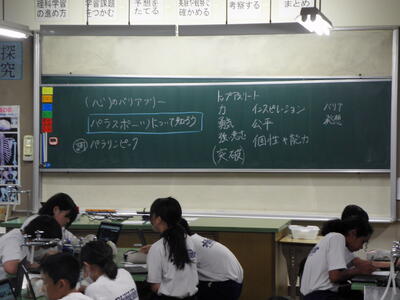 理科学習の進め方
学習課題をつかむ
予想をたてる
実験や観察で確かめる
考察する
まとめ
探究
(心)のバリアフリー
パラスポーツについて知ろう
パラリンピック
トップアスリート
力 インスピレーション
勇気 公平
強い意志 個性や能力
(突破)
バリア
発想